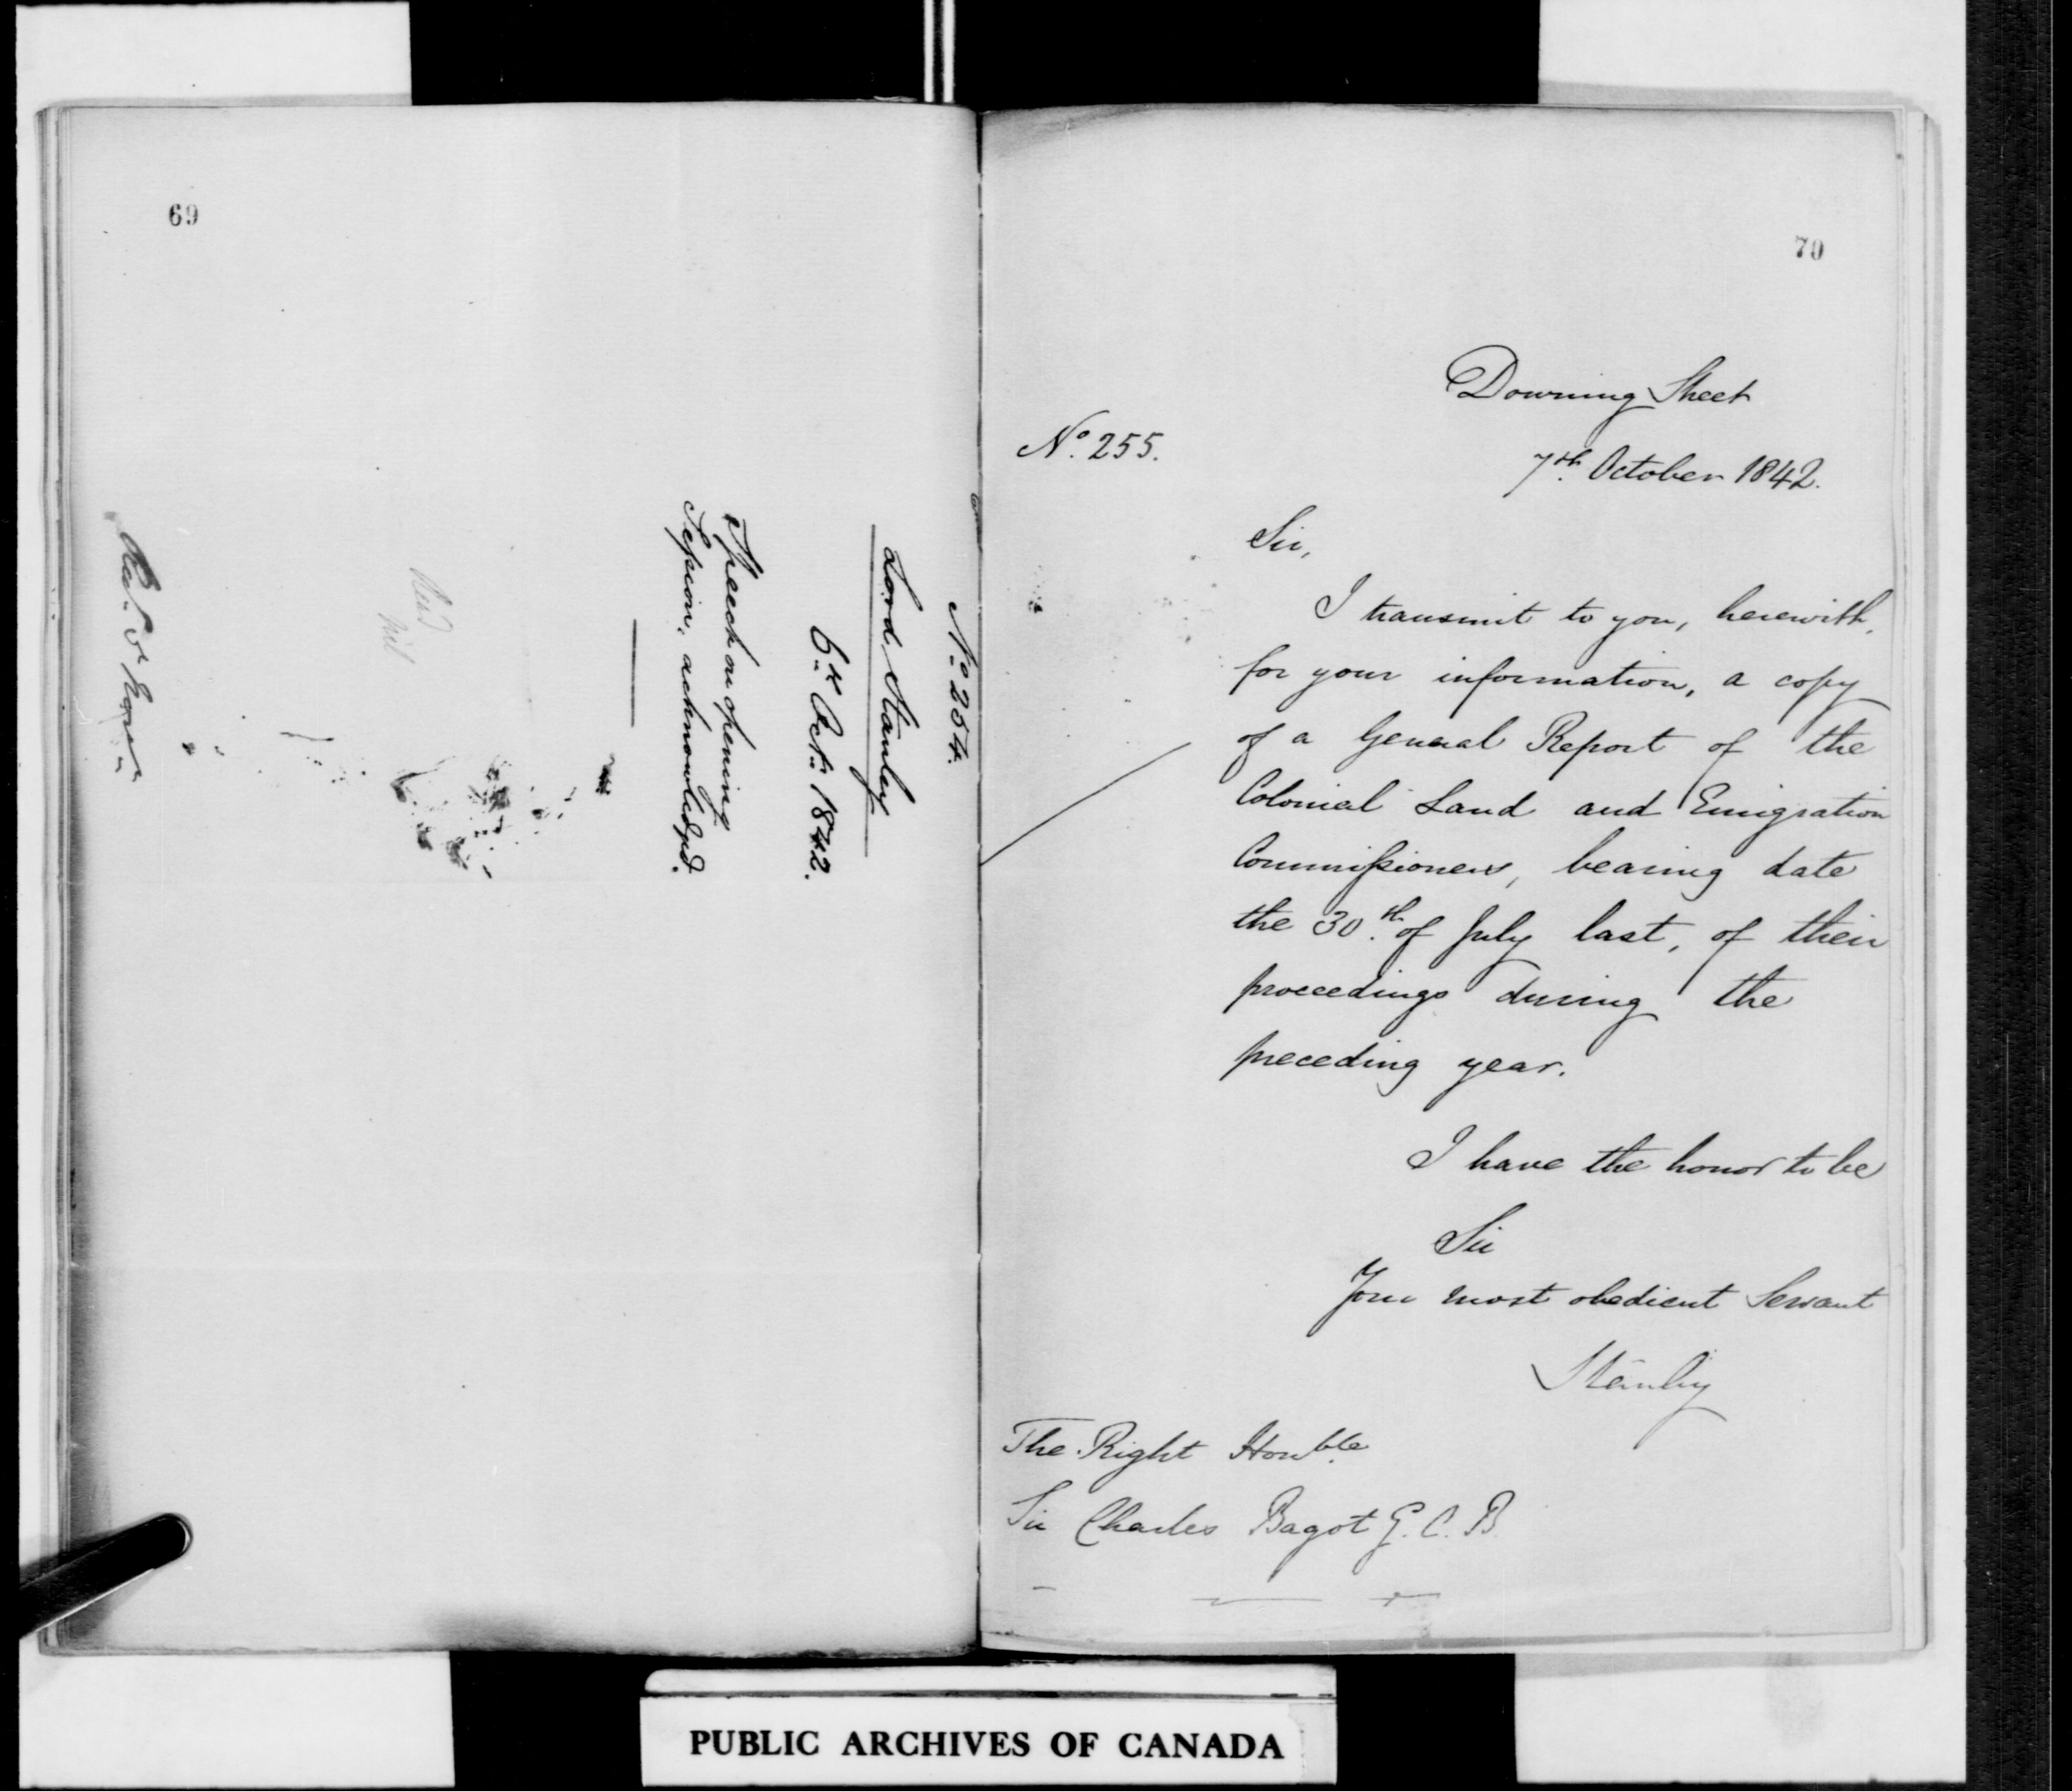 69
Nº 254.
Lord Stanley
6th Octr. 1842.
Speech on opening
Session, acknowledged.
70
Downing Street
Nº. 255.
7th. October 1842.
Sir,
I transmit to you, herewith,
for your information, a copy
of a General Report of the
Colonial Land and Emigration
Commissioners, bearing date
the 30th. of July last, of their
proceedings during the
preceding year.
I have the honor to be
Sir
Your most obedient Servant
Stanley
The Right Honble.
Sir Charles Bagot G.C.B
PUBLIC ARCHIVES OF CANADA